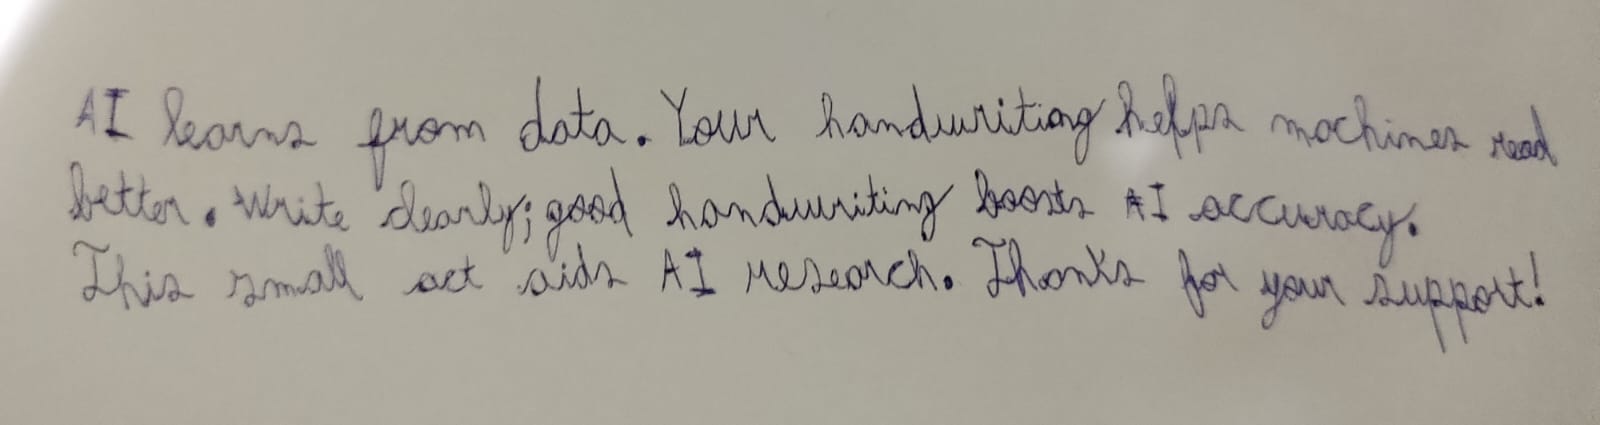 AI learns from data. Your handwriting helps machines read
better. Write clearly; good handwriting boosts AI accuracy.
This small act aids AI research. Thanks for your support!